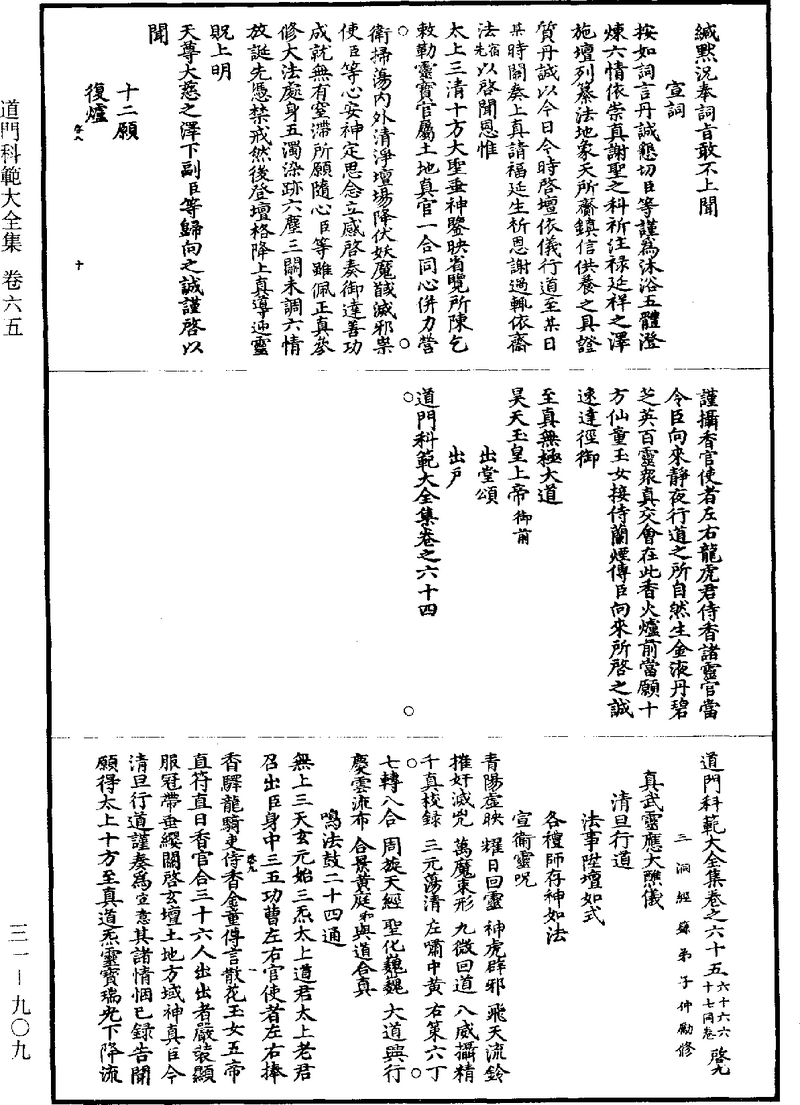 緘默況奉詞旨敢不上聞
宣詞
按如詞言丹誠懇切臣等謹爲沐浴五體澄
煉六情依崇真謝聖之科祈注祿延祥之澤
施壇列纂法地象天所齎鎮信供養之具證
質丹誠以今日今時啓壇依儀行道至某日
某時關奏上真請福延生祈恩謝過輒依齋
法先宿以啓聞恩惟
太上三清十方大聖垂神鑒映省覽所陳乞
敕勒靈寶官屬土地真官一合同心併力營
衛掃蕩内外清淨壇場降伏妖魔馘滅邪祟
使臣等心安神定思念立感啓奏御達善功
成就無有窒滯所願隨心臣等雖佩正真參
修大法處身五濁染跡六塵三關未調六情
放誕先憑禁戒然後登壇格降上真導迎靈
貺上明
天尊大慈之澤下副臣等歸向之誠謹啓以
聞
十二願
復爐
啓八
十
謹攝香官使者左右龍虎君侍香諸靈官當
令臣向來靜夜行道之所自然生金液丹碧
芝英百靈衆真交會在此香火爐前當願十
方仙童玉女接侍蘭煙傳臣向來所啓之誠
速達徑御
至真無極大道
昊天玉皇上帝御前
出堂頌
出户
道門科範大全集卷之六十四
道門科範大全集卷之六十五 六十六六十七同卷 啓九
三洞經籙弟子仲勵修
真武靈應大醮儀
清旦行道
法事陞壇如式
各禮師存神如法
宣衛靈呪
青陽虛映 耀日回靈 神虎辟邪 飛天流鈴
摧奸滅兇 萬魔束形 九微回道 八威攝精
千真校録 三元蕩清 左嘯中黃 右策六丁
七轉八合 周旋天經 聖化巍巍 大道興行
慶雲流布 合景黃庭 和與道合真
鳴法鼓二十四通
無上三天玄元始三炁太上道君太上老君
召出臣身中三五功曹左右官使者左右捧
香驛龍騎吏侍香金童傳言散花玉女五帝
直符直日香官合三十六人出出者嚴裝顯
服冠帶垂纓關啓玄壇土地方域神真臣今
清旦行道謹奏爲宣意其諸情悃已録告聞
願得太上十方至真道炁靈寶瑞光下降流
啓九
道門科範大全集 卷六五
三一—九〇九